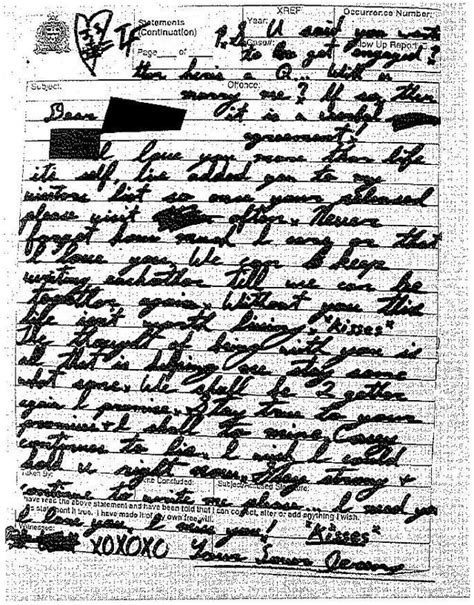 Statements
(Continuation)
XREF
Year:
Occurrence Number:
Page of
Casno.:
Follow Up Report
TF
P.S. U said you want
to be get engaged?
then here's a Q... Will u
marry me? If so then
Subject:
Offence:
Dear
it is a verbal
agreement!
I love you more than life
its self, I've added you to my
visitors list so once your released
please visit often. Never
forget how much I care or that
I love you. We can keep
writing eachother till we can be
together again. Without you this
life isn't worth living. *Kisses*
The thought of being with you is
all that is helping me stay some
what sane. We shall be 2 gether
again I promise. Stay true to your
promises & I shall to mine. Casey
continues to lie. I wish I could
hold u right now. Stay strong &
Taken By:
Time Concluded:
Subject/Accused Signature:
continue to write me please I need you
I have read the above statement and have been told that I can correct, alter or add anything I wish.
This statement is true. I have made it of my own free will.
I love you, I need you! *Kisses*
Witnessed:
XOXOXO Your Lover